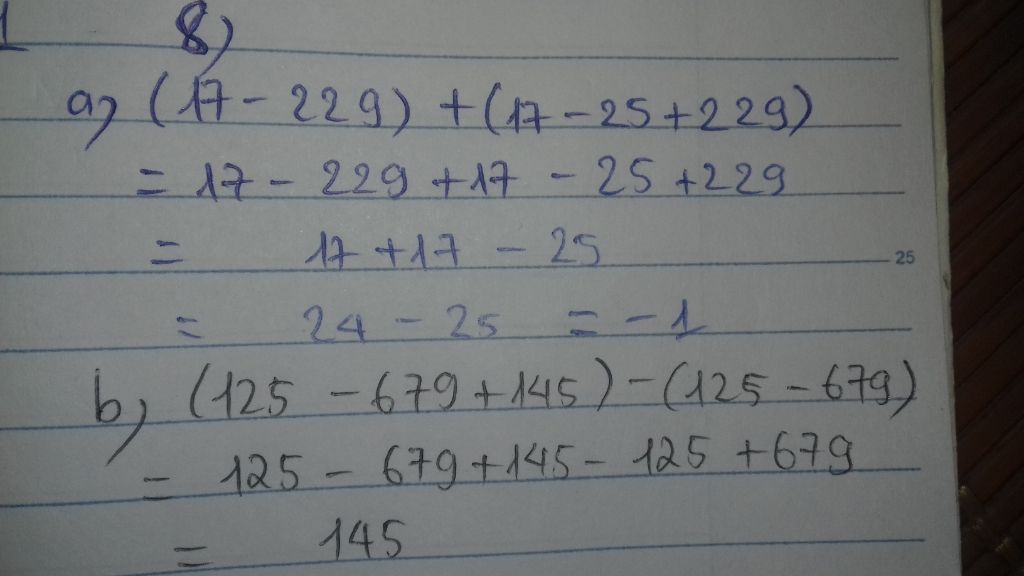 1 8)
a) (17 - 229) + (17 - 25 + 229)
= 17 - 229 + 17 - 25 + 229
= 17 + 17 - 25
25
= 24 - 25 = -1
b) (125 - 679 + 145) - (125 - 679)
= 125 - 679 + 145 - 125 + 679
= 145